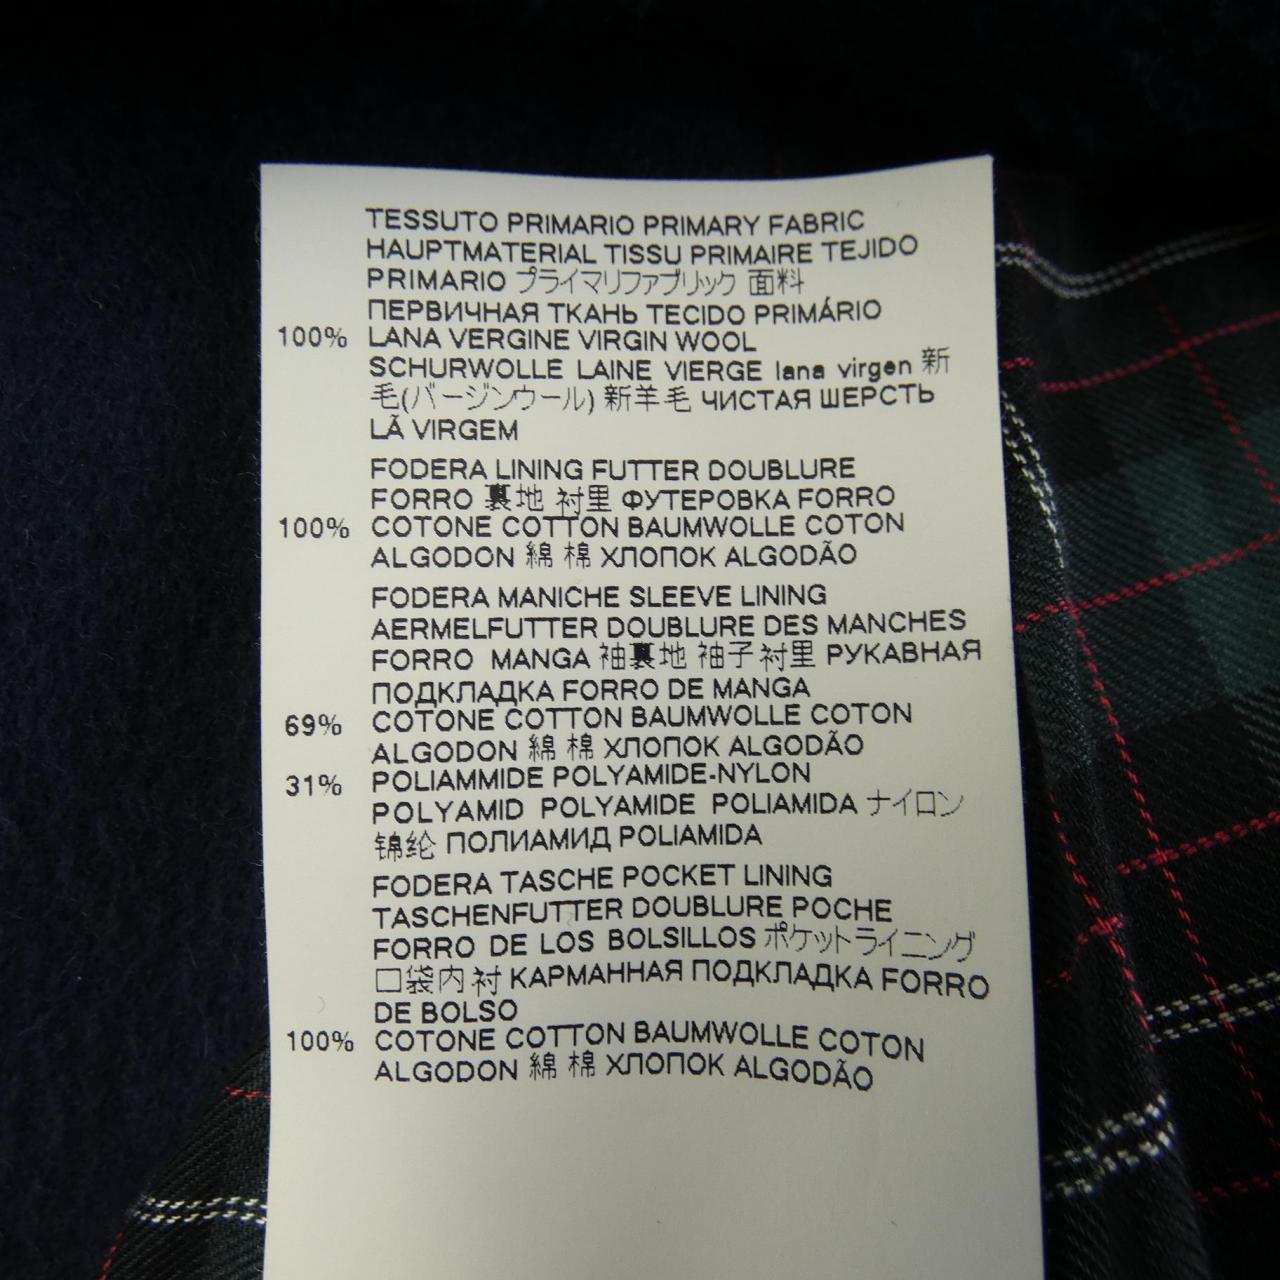 TESSUTO PRIMARIO PRIMARY FABRIC
HAUPTMATERIAL TISSU PRIMAIRE TEJIDO
PRIMARIO プライマリファブリック 面料
ПЕРВИЧНАЯ ТКАНЬ TECIDO PRIMÁRIO
100% LANA VERGINE VIRGIN WOOL
SCHURWOLLE LAINE VIERGE lana virgen 新
毛(バージンウール) 新羊毛 ЧИСТАЯ ШЕРСТЬ
LÃ VIRGEM
FODERA LINING FUTTER DOUBLURE
FORRO 裏地 衬里 ФУТЕРОВКА FORRO
100% COTONE COTTON BAUMWOLLE COTON
ALGODON 綿 棉 ХЛОПОК ALGODÃO
FODERA MANICHE SLEEVE LINING
AERMELFUTTER DOUBLURE DES MANCHES
FORRO MANGA 袖裏地 袖子衬里 РУКАВНАЯ
ПОДКЛАДКА FORRO DE MANGA
69% COTONE COTTON BAUMWOLLE COTON
ALGODON 綿 棉 ХЛОПОК ALGODÃO
31% POLIAMMIDE POLYAMIDE-NYLON
POLYAMID POLYAMIDE POLIAMIDA ナイロン
锦纶 ПОЛИАМИД POLIAMIDA
FODERA TASCHE POCKET LINING
TASCHENFUTTER DOUBLURE POCHE
FORRO DE LOS BOLSILLOS ポケットライニング
口袋内衬 КАРМАННАЯ ПОДКЛАДКА FORRO
DE BOLSO
100% COTONE COTTON BAUMWOLLE COTON
ALGODON 綿 棉 ХЛОПОК ALGODÃO